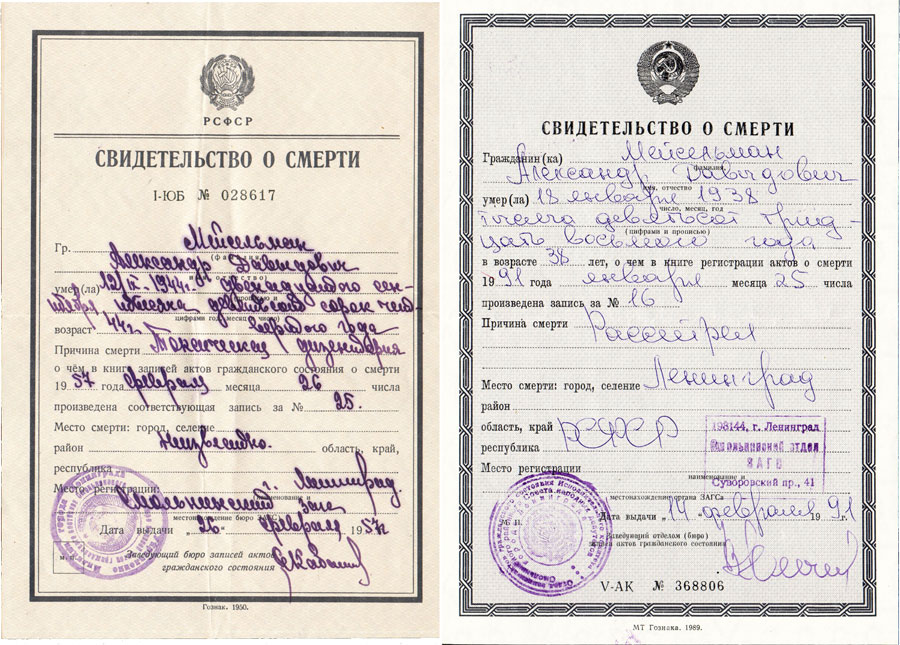 РСФСР
СВИДЕТЕЛЬСТВО О СМЕРТИ
I-ЮБ № 028617
Гр. Мейсельман
(фамилия,
Александр Давидович
умер(ла) 12/IX-1944 г. двенадцатого сен-
тября тысяча девятьсот сорок чет-
цифрами и прописью
вертого года
возраст 44 г.
Причина смерти Токсическая дизентерия
о чём в книге записей актов гражданского состояния о смерти
1957 года февраля месяца 26 числа
произведена соответствующая запись за № 25.
Место смерти: город, селение
район Неизвестно. область, край,
республика
Место регистрации: г. Ленинград
наименование и
Смольнинский загс
местонахождение бюро ЗАГСа
Дата выдачи „26 февраля 1957 г.
М. П.
Заведующий бюро записей актов
гражданского состояния
Гознак. 1950.
СВИДЕТЕЛЬСТВО О СМЕРТИ
Гражданин(ка) Мейсельман
фамилия,
Александр Давидович
имя, отчество
умер(ла) 18 января 1938
число, месяц, год
тысяча девятьсот трид-
(цифрами и прописью)
цать восьмого года
в возрасте 38 лет, о чем в книге регистрации актов о смерти
1991 года января месяца 25 числа
произведена запись за № 16
Причина смерти Расстрел
Место смерти: город, селение Ленинград
район
область, край
республика РСФСР
193144, г. Ленинград
Смольнинский отдел
ЗАГС
Суворовский пр., 41
Место регистрации
наименование и
местонахождение органа ЗАГСа
Дата выдачи „14 февраля 1991
М. П.
Заведующий отделом (бюро)
записи актов гражданского состояния
V-АК № 368806
МТ Гознака. 1989.